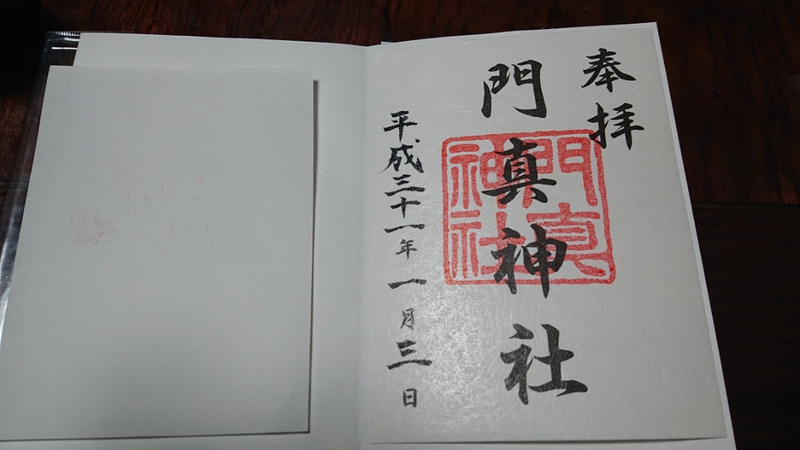 奉拝
門真神社
門真神社
平成三十一年一月三日